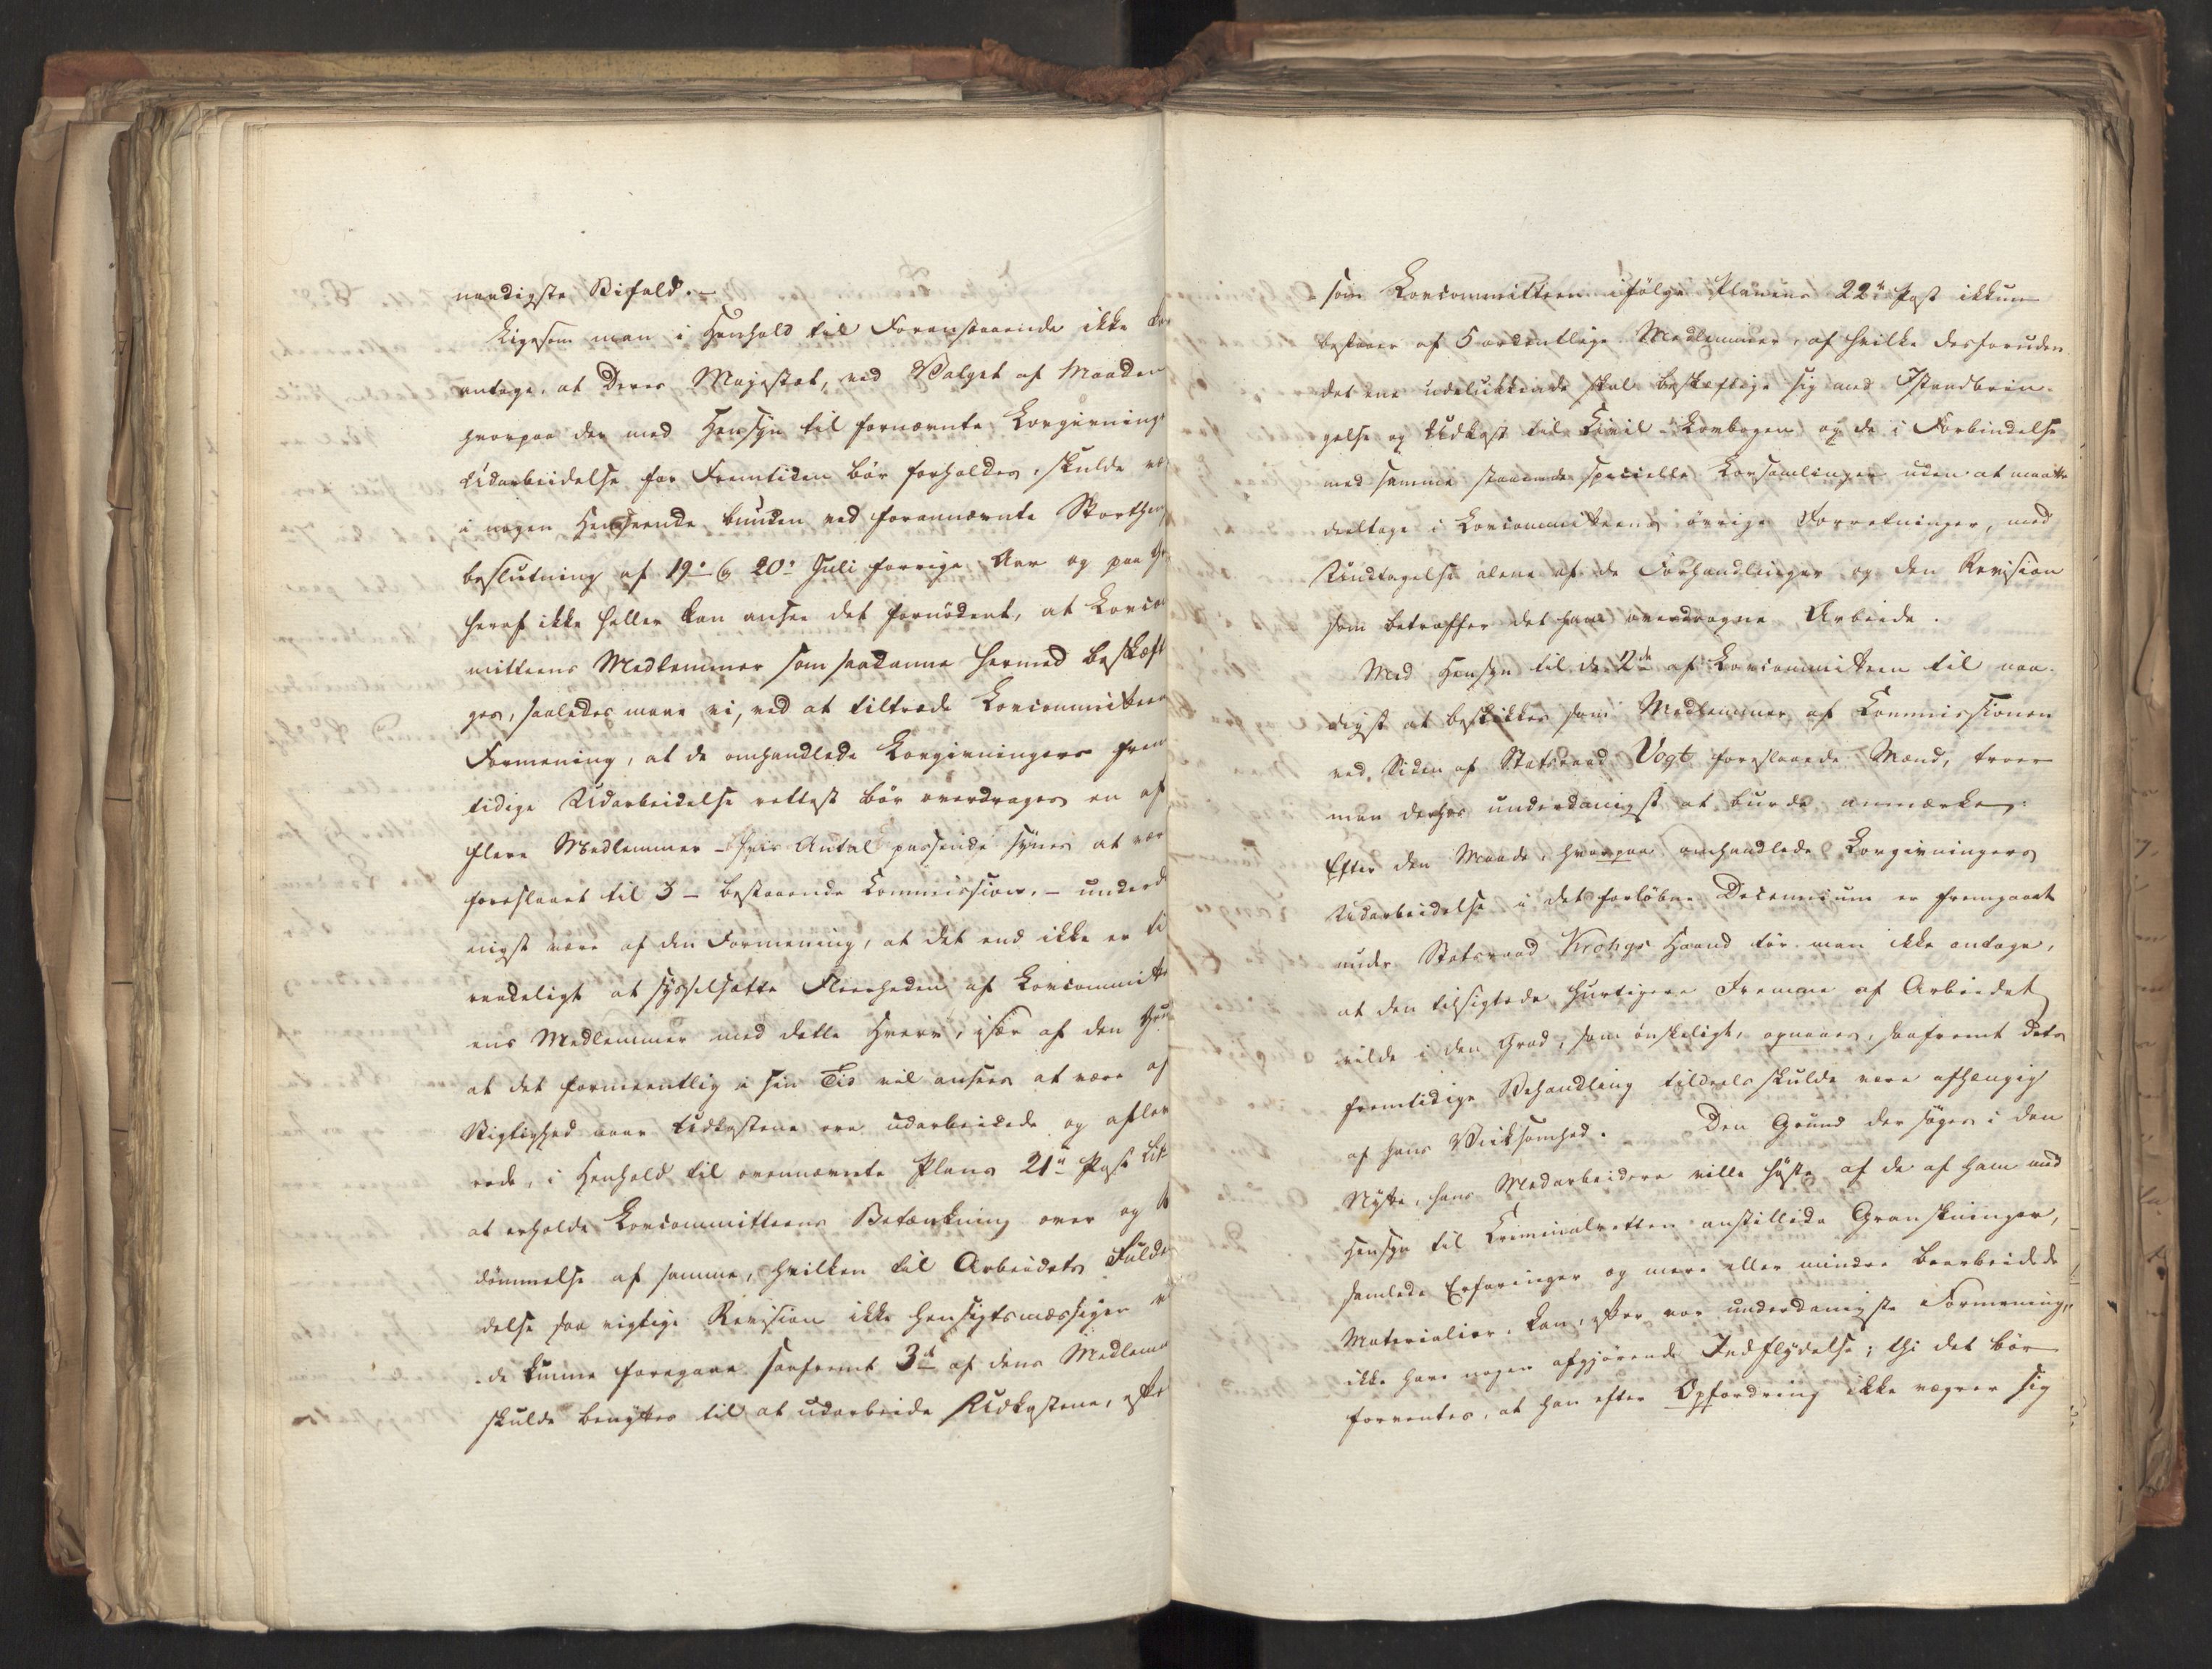 naadigste Bifald. –
Ligesom man i Henhold til Foranstaaende ikke kan
antage, at Deres Majestæt, ved Valget af Maaden
hvorpaa der med Hensyn til fornævnte Lovgivnings
Udarbeidelse for Fremtiden bør forholdes, skulde væ
i nogen Henseende bunden ved forannævnte Storthings
beslutning af 19de & 20de Juli forrige Aar og paa Gr
heraf ikke heller kan ansee det fornödent, at Lovcom
mitteens Medlemmer som saadanne hermed beskjæft
ges, saaledes maae vi, ved at tiltræde Lovcommitteens
Formening, at de omhandlede Lovgivningers frem
tidige Udarbeidelse rettest bör overdrages en af
flere Medlemmer – hvis Antal passende synes at være
foreslaaet til 3 – bestaaende Commission, – underda
nigst være af den Formening, at det end ikke er til
raadeligt at sysselsætte Fleerheden af Lovcommitte
ens Medlemmer med dette Hverv, især af den Grund
at det formeentlig i sin Tid vil ansees at være af
Vigtighed naar Udkastene ere udarbeidede og aflev
rede, i Henhold til ovennævnte Plans 21de Post Litr
at erholde Lovcommitteens Betænkning over og be
dömmelse af samme, hvilken til Arbeidets Fulden
delse saa vigtige Revision ikke hensigtsmæssigen vil
de kunne foregaae saafremt 3de af dens Medlemmer
skulde benyttes til at udarbeide Udkastene, efter
som Lovcommitteen ifölge Planens 22de Post ikkun
bestaaer af 5 ordentlige Medlemmer, af hvilke desforuden
det ene udelukkende skal beskæftige sig med Istandbrin-
gelse og Udkast til Civil-Lovbogen og de i Forbindelse
med samme staaende specielle Lovsamlinger uden at maatte
deeltage i Lovcommitteens övrige Forretninger, med
Undtagelse alene af de Forhandlinger og den Revision
som betræffer det ham overdragne Arbeide.
Med Hensyn til de 2de af Lovcommitteen til naa-
digst at beskikkes som Medlemmer af Commissionen
ved Siden af Statsraad Vogt foreslaaede Mænd, troer
man derhos underdanigst at burde anmærke,:
Efter den Maade, hvorpaa omhandlede Lovgivningers
Udarbeidelse i det forløbne Decennium er fremgaaet
under Statsraad Krohgs Haand tör man ikke antage,
at den tilsigtede hurtigere Fremme af Arbeidet
vilde i den Grad, som önskeligt, opnaaes, saafremt dets
fremtidige Behandling tildeels skulde være afhængig
af hans Virksomhed. Den Grund der söges i den
Nytte, hans Medarbeidere ville høste af de af ham med
Hensyn til Criminalretten anstillede Granskninger,
samlede Erfaringer og mere eller mindre bearbeidede
Materialier, kan, efter vor underdanigste Formening,
ikke have nogen afgjörende Indflydelse; thi det bör
forventes, at han efter Opfordring ikke vægrer sig